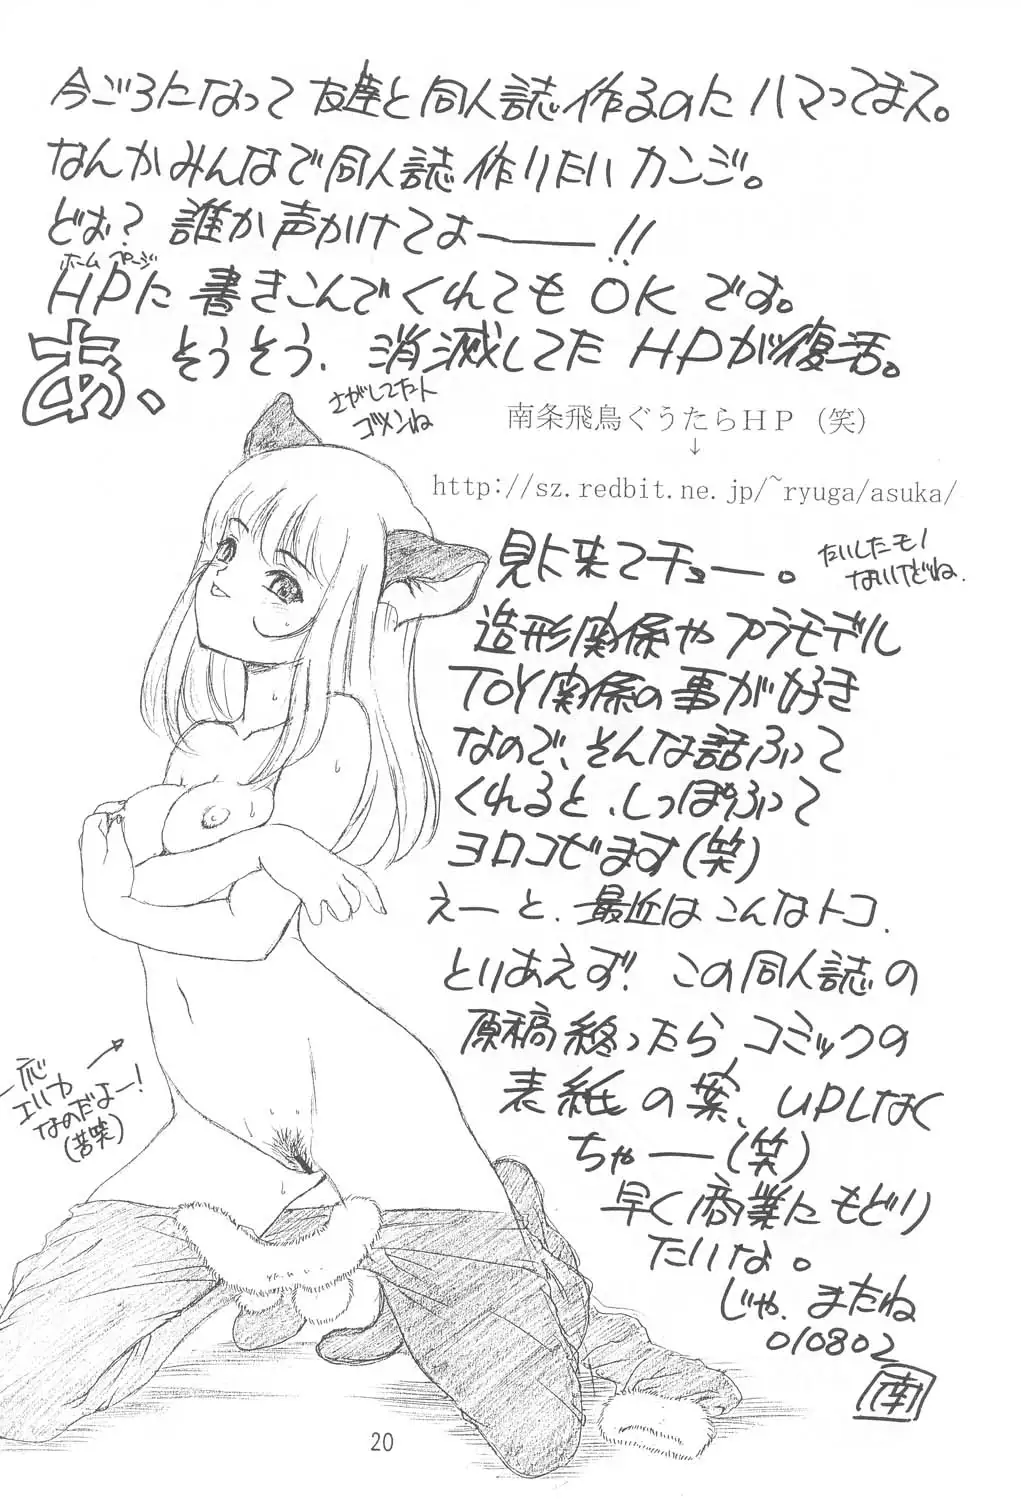 今ごろになって友達と同人誌作るのにハマってます。
なんかみんなで同人誌作りたいカンジ。
どお?誰か声かけてよーーー!!
ホームページ
HPに書きこんでくれてもOKです。
あ、そうそう、消滅してたHPが復活。
さがしてた人
ゴメンね
南条飛鳥ぐうたらHP(笑)
↓
http://sz.redbit.ne.jp/~ryuga/asuka/
見に来てチョー。
たいしたモノ
ないけどね.
造形関係やプラモデル
TOY関係の事が好き
なので、そんな話ふって
くれると、しっぽふって
ヨロコびます(笑)
えーと、最近はこんなトコ.
とりあえず!この同人誌の
原稿終ったら、コミックの
表紙の案、UPしなく
ちゃー(笑)
早く商業にもどり
たいな。
じゃ、またね
010802
南
一応
エリカ
なのだよー!
(苦笑)
20